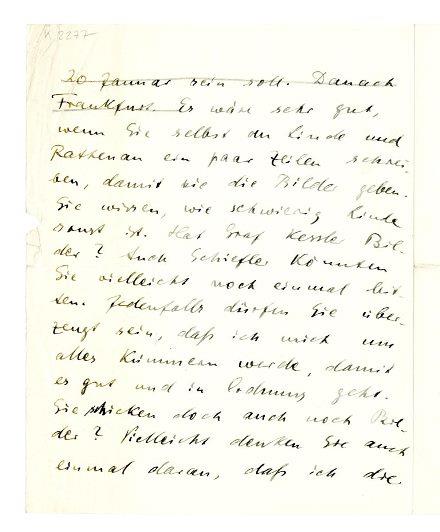 K 2277
20 Januar sein soll. Danach
Frankfurt. Es wäre sehr gut,
wenn Sie selbst an Linde und
Rathenau ein paar Zeilen schrei-
ben, damit sie die Bilder geben.
Sie wissen, wie schwierig Linde
sonst ist. Hat Graf Kessler Bil-
der? Auch Schiefler könnten
Sie vielleicht noch einmal bit-
ten. Jedenfalls dürfen Sie über-
zeugt sein, daß ich mich um
alles kümmern werde, damit
es gut und in Ordnung geht.
Sie schicken doch auch noch Bil-
der? Vielleicht denken Sie auch
einmal daran, daß ich die